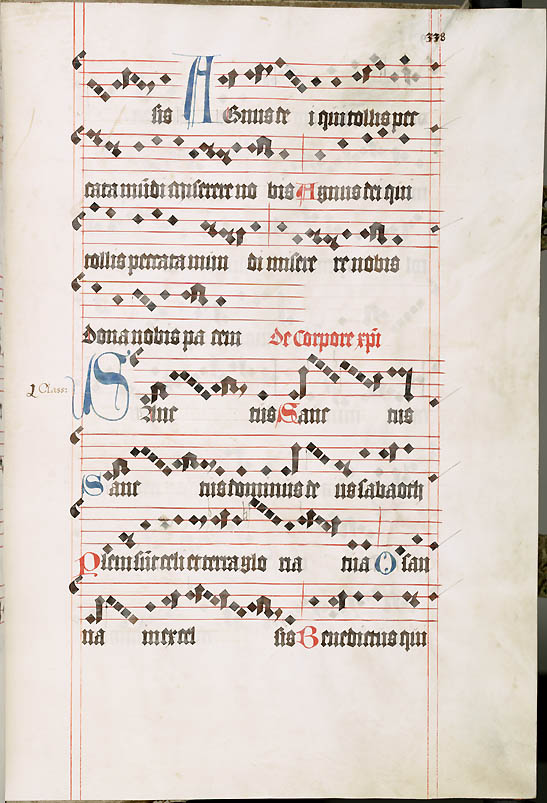 338
sis AGnus de i qui tollis pec
cata mūdi miserere no bis Agnus dei qui
tollis peccata mun di misere re nobis
dona nobis pa cem De Corpore xp̄i
SAnc tus Sanc tus
Sanc tus dominus de us sabaoth
Pleni sūt celi et terra glo ria tua Osan
na in excel sis Benedictus qui